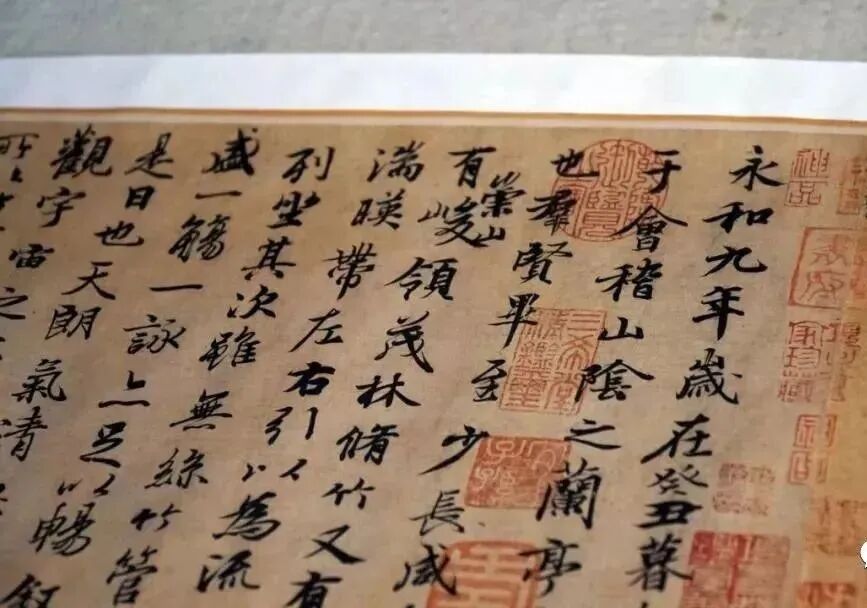 神品
永和九年歲在癸丑暮
于會稽山陰之蘭亭
也羣賢畢至少長咸
有崇山峻領茂林脩竹又有
湍暎帶左右引以為流
列坐其次雖無絲竹管
盛一觴一詠亦足以暢叙
是日也天朗氣清
觀宇宙之
三希堂精鑑璽